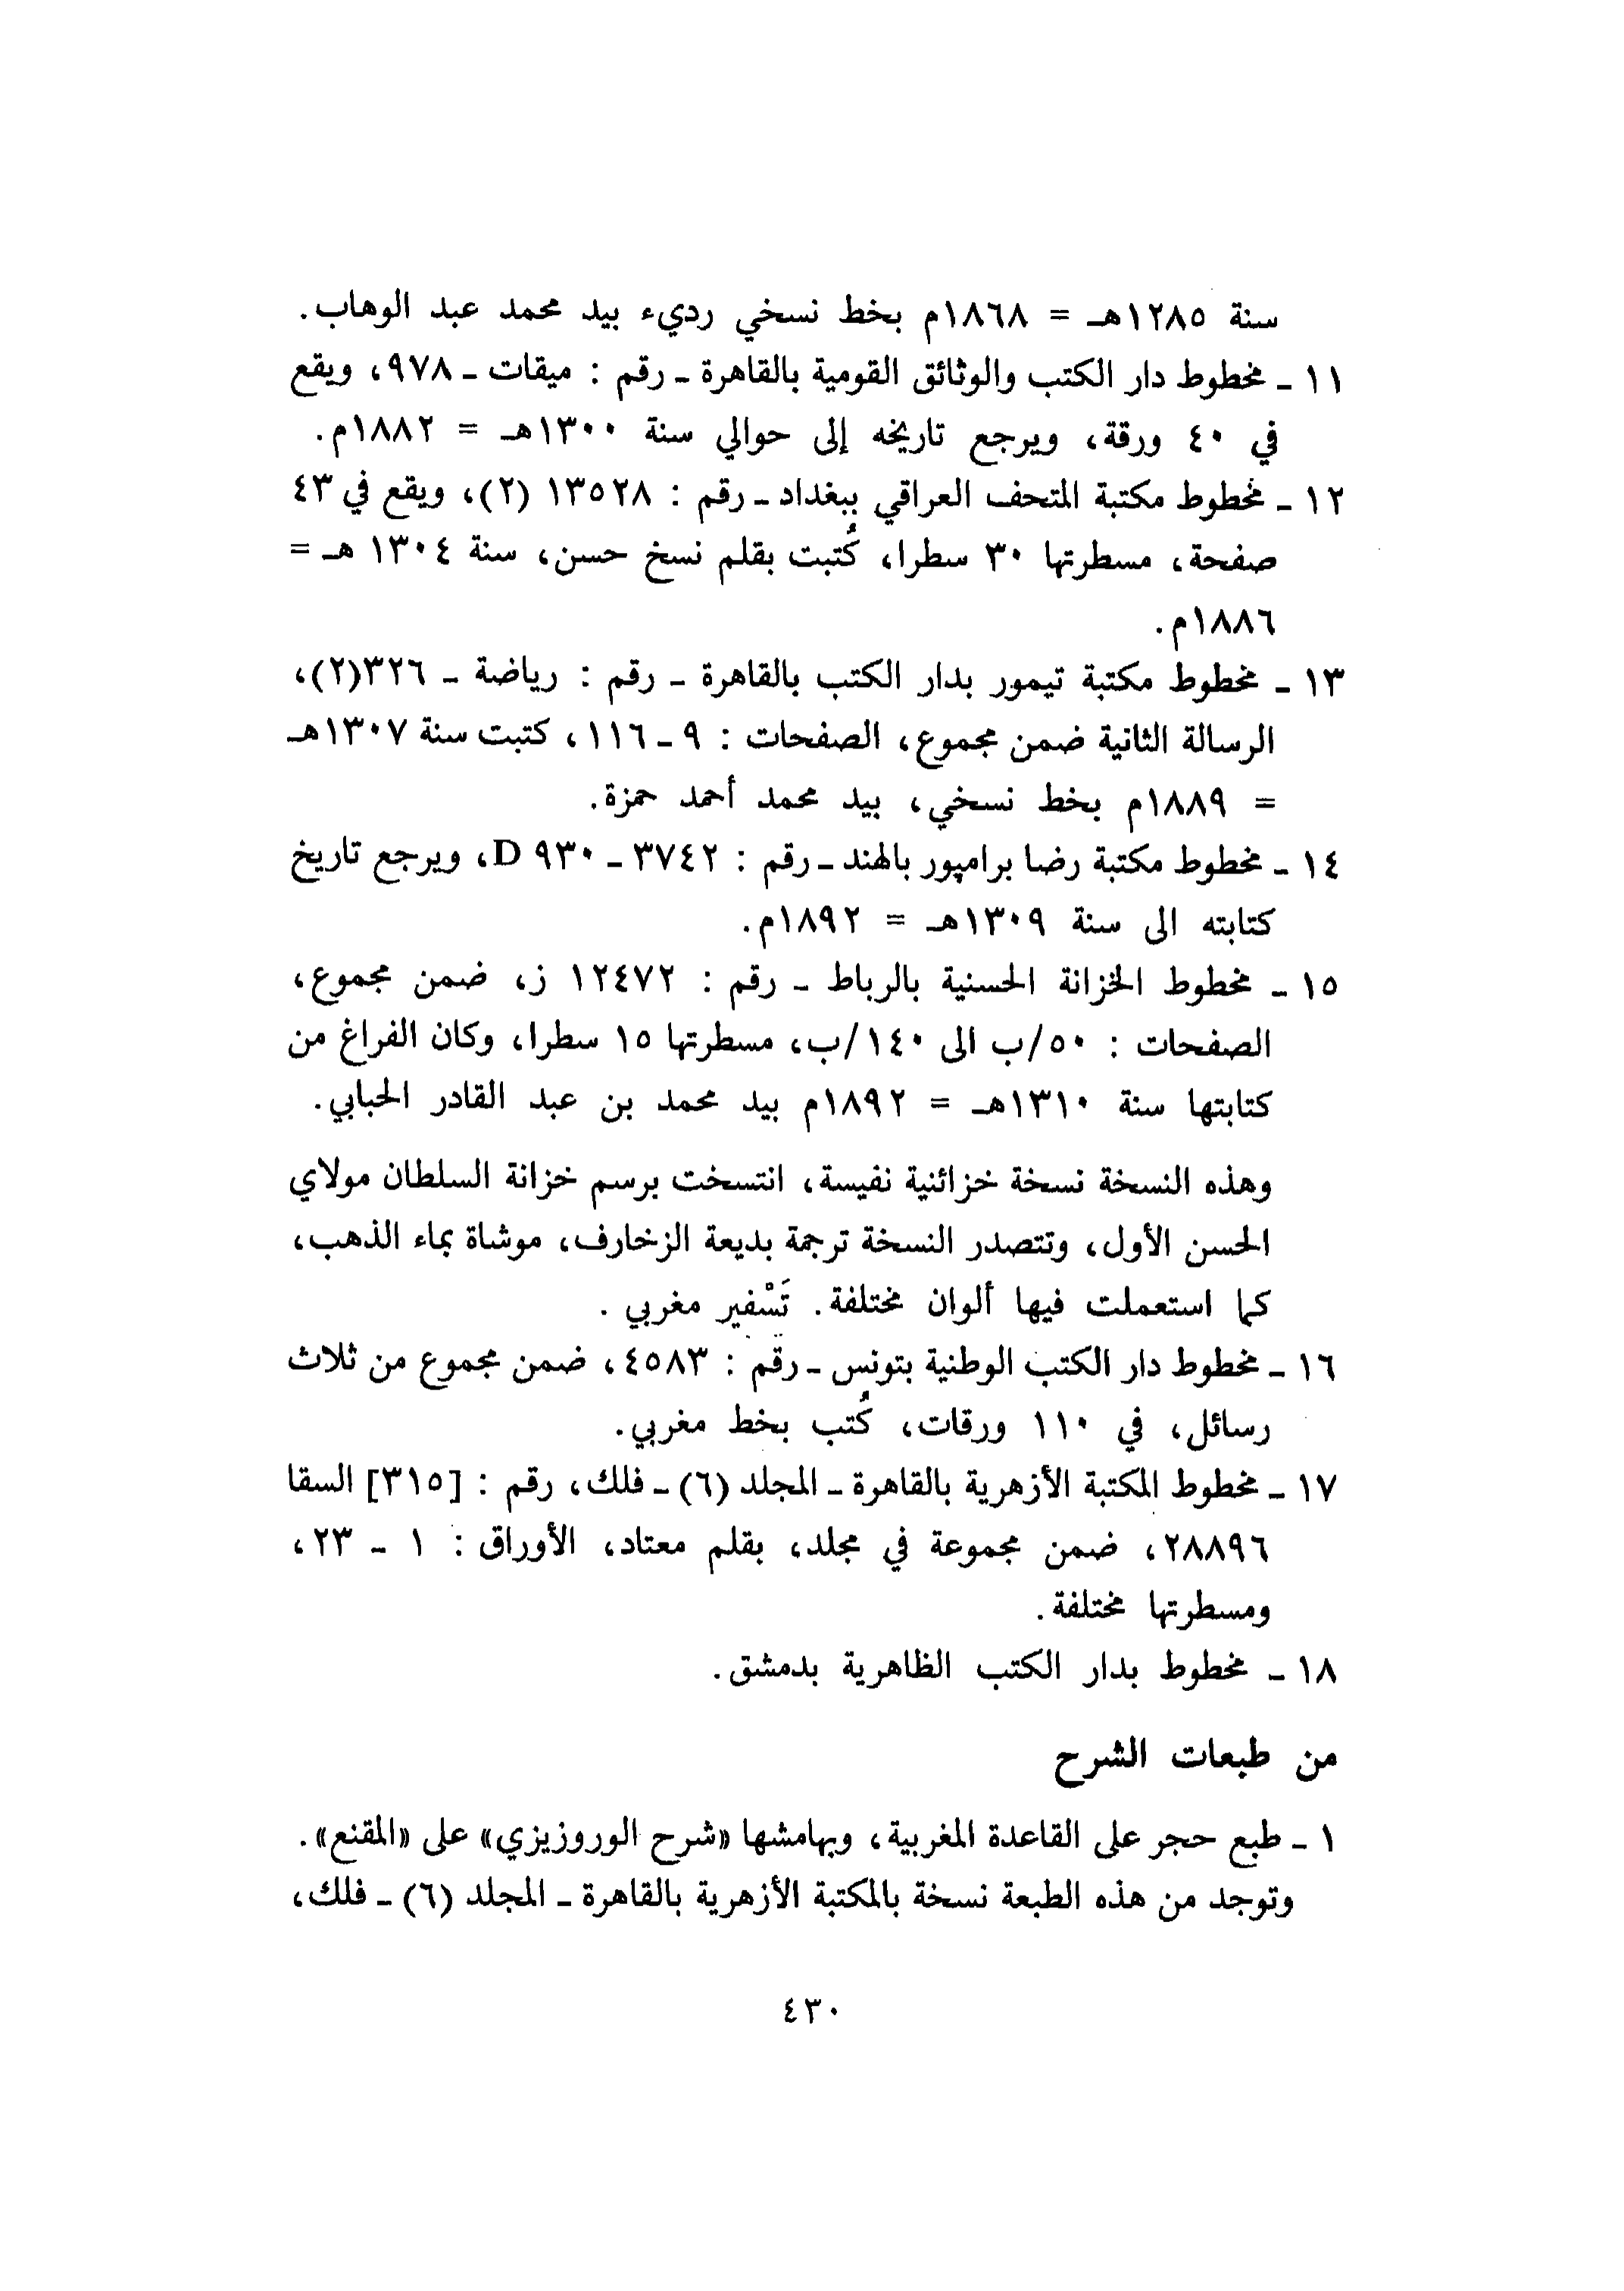 سنة ١٢٨٥هـ = ١٨٦٨م بخط نسخي رديء بيد محمد عبد الوهاب.
١١ ـ مخطوط دار الكتب والوثائق القومية بالقاهرة ـ رقم : ميقات ـ ٩٧٨، ويقع
في ٤٠ ورقة، ويرجع تاريخه إلى حوالي سنة ١٣٠٠هـ = ١٨٨٢م.
١٢ ـ مخطوط مكتبة المتحف العراقي ببغداد ـ رقم : ١٣٥٢٨ (٢)، ويقع في ٤٣
صفحة، مسطرتها ٣٠ سطرا، كُتبت بقلم نسخ حسن، سنة ١٣٠٤ هـ =
١٨٨٦م.
١٣ ـ مخطوط مكتبة تيمور بدار الكتب بالقاهرة ـ رقم : رياضة ـ ٣٢٦(٢)،
الرسالة الثانية ضمن مجموع، الصفحات : ٩ ـ ١١٦، كتبت سنة ١٣٠٧هـ
= ١٨٨٩م بخط نسخي، بيد محمد أحمد حمزة.
١٤ ـ مخطوط مكتبة رضا برامپور بالهند ـ رقم : ٣٧٤٢ ـ ٩٣٠ D، ويرجع تاريخ
كتابته الى سنة ١٣٠٩هـ = ١٨٩٢م.
١٥ ـ مخطوط الخزانة الحسنية بالرباط ـ رقم : ١٢٤٧٢ ز، ضمن مجموع،
الصفحات : ٥٠/ب الى ١٤٠/ب، مسطرتها ١٥ سطرا، وكان الفراغ من
كتابتها سنة ١٣١٠هـ = ١٨٩٢م بيد محمد بن عبد القادر الحبابي.
وهذه النسخة نسخة خزائنية نفيسة، انتسخت برسم خزانة السلطان مولاي
الحسن الأول، وتتصدر النسخة ترجمة بديعة الزخارف، موشاة بماء الذهب،
كما استعملت فيها ألوان مختلفة. تَسْفير مغربي .
١٦ ـ مخطوط دار الكتب الوطنية بتونس ـ رقم : ٤٥٨٣، ضمن مجموع من ثلاث
رسائل، في ١١٠ ورقات، كُتب بخط مغربي.
١٧ ـ مخطوط المكتبة الأزهرية بالقاهرة ـ المجلد (٦) ـ فلك، رقم : [٣١٥] السقا
٢٨٨٩٦، ضمن مجموعة في مجلد، بقلم معتاد، الأوراق : ١ ـ ٢٣،
ومسطرتها مختلفة.
١٨ ـ مخطوط بدار الكتب الظاهرية بدمشق.
من طبعات الشرح
١ ـ طبع حجر على القاعدة المغربية، وبهامشها «شرح الوروزيزي» على «المقنع».
وتوجد من هذه الطبعة نسخة بالمكتبة الأزهرية بالقاهرة ـ المجلد (٦) ـ فلك،
٤٣٠